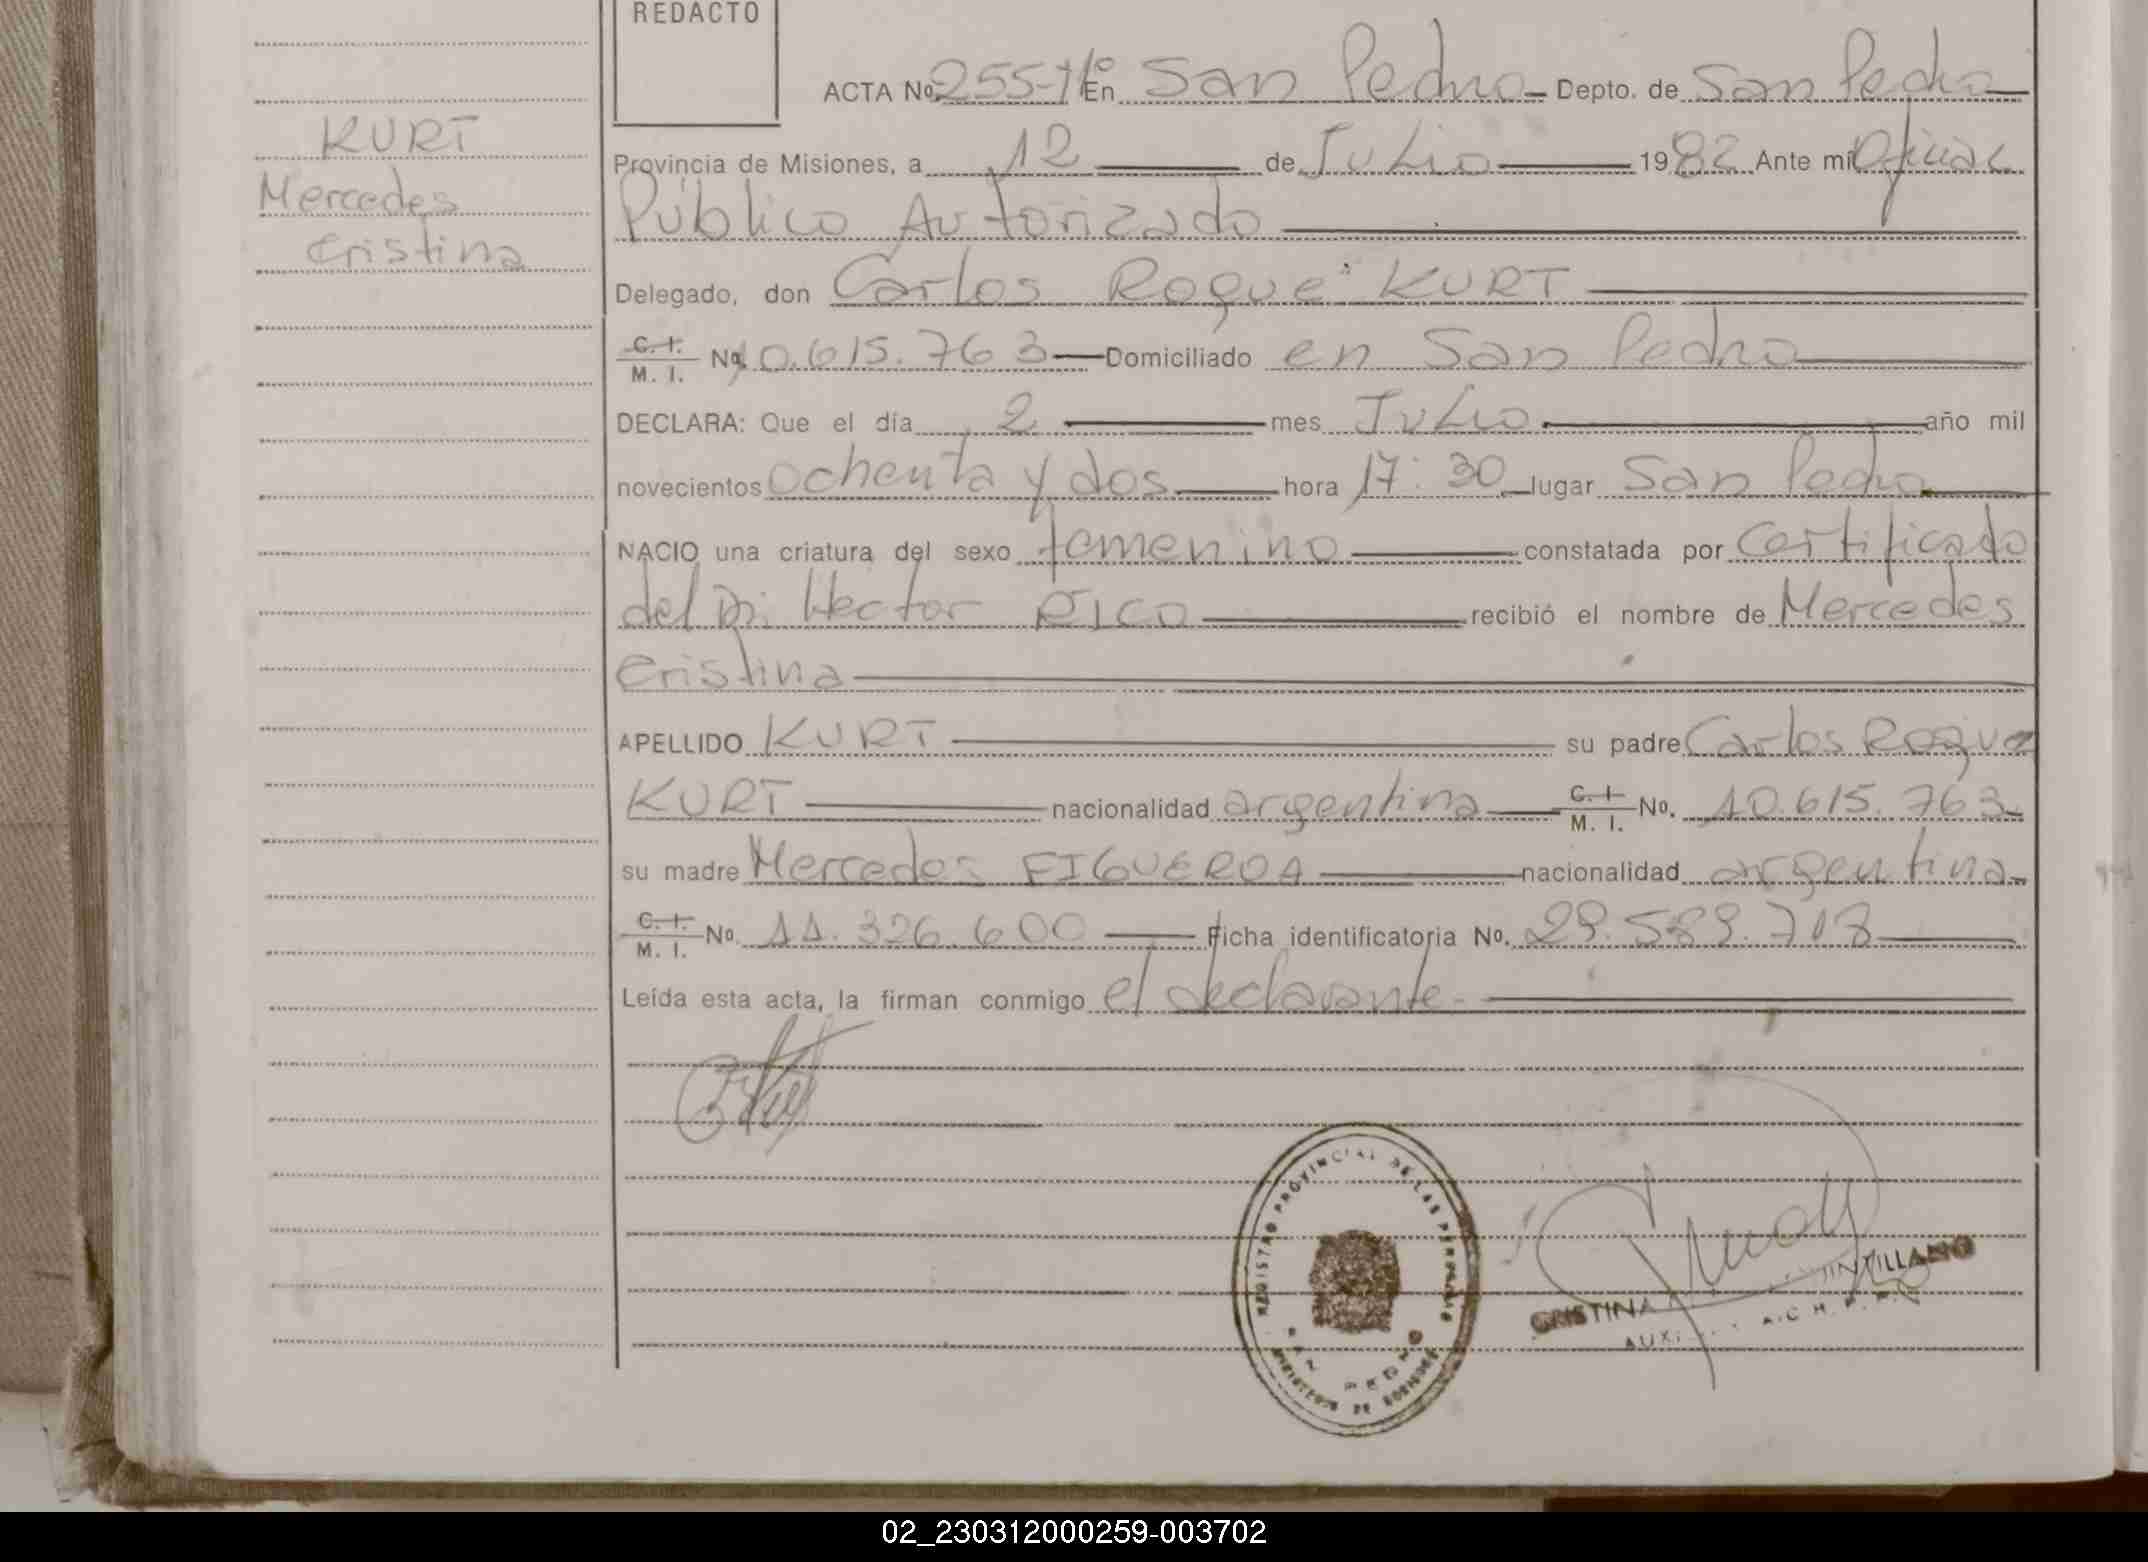 REDACTO
ACTA No. 255-1º En San Pedro Depto. de San Pedro
KURT
Provincia de Misiones, a 12 de Julio 1982 Ante mi Oficial
Mercedes
Público Autorizado
Cristina
Delegado, don Carlos Roque KURT
C. I. M. I. No. 10.615.763 Domiciliado en San Pedro
DECLARA: Que el día 2 mes Julio año mil
novecientos ochenta y dos hora 17:30 lugar San Pedro
NACIO una criatura del sexo femenino constatada por Certificado
del Dr. Hector RICO recibió el nombre de Mercedes
Cristina
APELLIDO KURT su padre Carlos Roque
KURT nacionalidad argentina C. I. M. I. No. 10.615.763
su madre Mercedes FIGUEROA nacionalidad argentina
C. I. M. I. No. 11.326.600 Ficha identificatoria No. 29.589.718
Leída esta acta, la firman conmigo el declarante
REGISTRO PROVINCIAL DE LAS PERSONAS
SAN PEDRO
MINISTERIO DE GOBIERNO
CRISTINA QUINTILLANO
02_230312000259-003702